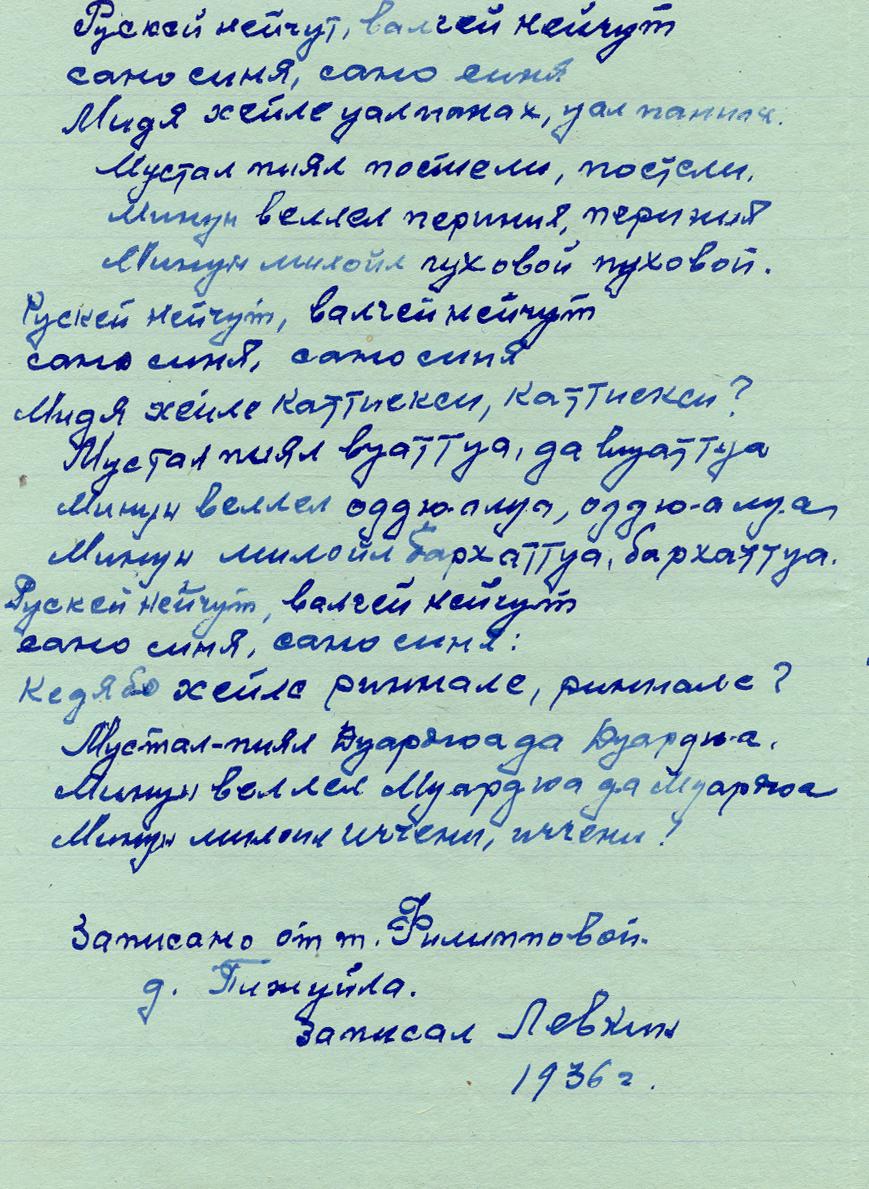 Рускей нейчут, валгей нейчут
сано синя, сано синя
Мидя хейле уалпанах, уалпанах.
Мустал пиял постели, постели.
Минун веллел периния, периния
Минун милойл пуховой пуховой.
Рускей нейчут, валгей нейчут
сано синя, сано синя
Мидя хейле каттиекси, каттиекси?
Мустал пиял вуаттуа, да вуаттуа
Минун веллел оддю-алуа, оддю-алуа
Минун милойл бархаттуа, бархаттуа.
Рускей нейчут, валгей нейчут
сано синя, сано синя:
Кедябо хейле риннале, риннале?
Мустал-пиял Дуардюа да Дуардю-а.
Минун веллел Муардюа да Муардюа
Минун милоил иччени, иччени!
Записано от т. Филипповой.
д. Пижуйла.
Записал Левкин
1936 г.